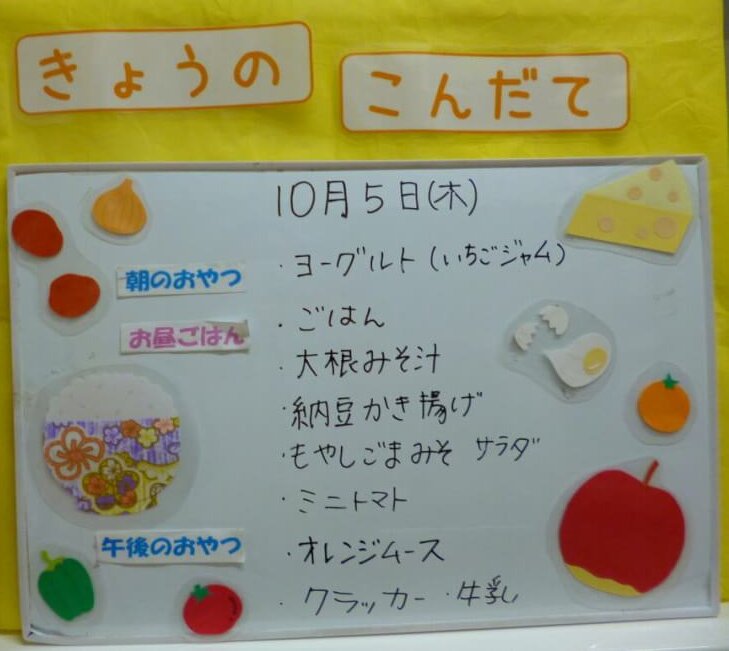 きょうの
こんだて
10月5日(木)
朝のおやつ
・ヨーグルト(いちごジャム)
お昼ごはん
・ごはん
・大根みそ汁
・納豆かき揚げ
・もやしごまみそ サラダ
・ミニトマト
午後のおやつ
・オレンジムース
・クラッカー ・牛乳